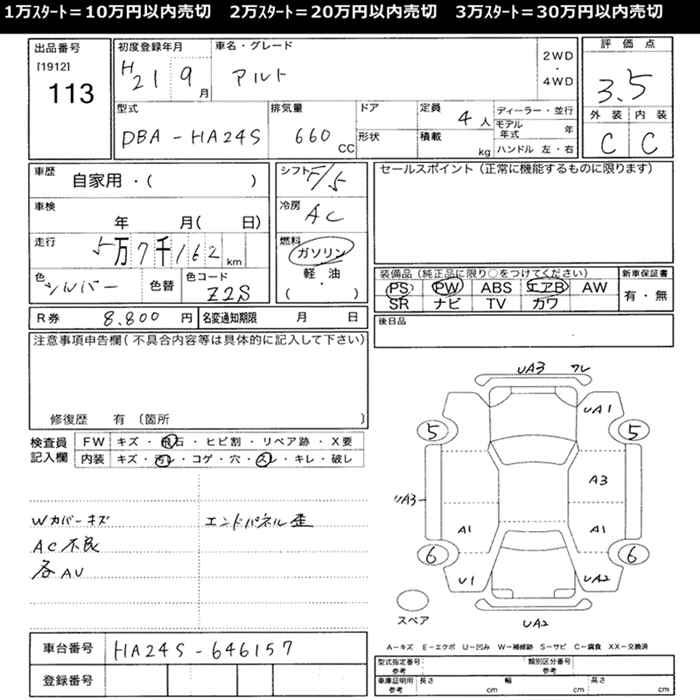 1万ｽﾀｰﾄ＝10万円以内売切　2万ｽﾀｰﾄ＝20万円以内売切　3万ｽﾀｰﾄ＝30万円以内売切
出品番号
[1912]
113
初度登録年月
H21 9月
車名・グレード
アルト
2WD
・
4WD
評価点
3.5
外装 内装
C C
型式
DBA-HA24S
排気量
660 CC
ドア
形状
定員 4人
積載 kg
ディーラー・並行
モデル年式 年
ハンドル 左・右
車歴 自家用・( )
車検 年 月( 日)
走行 5万7千162 km
色 シルバー
色替
色コード Z2S
シフト F/5
冷房 AC
燃料
ガソリン
軽油
・
( )
セールスポイント（正常に機能するものに限ります）
装備品（純正品に限り○をつけてください）
PS PW ABS エアB AW
SR ナビ TV カワ
新車保証書
有・無
R券 8.800 円 名変通知期限 月 日
後日品
注意事項申告欄（不具合内容等は具体的に記入して下さい）
修復歴 有〔箇所 〕
検査員
記入欄
FW キズ・飛石・ヒビ割・リペア跡・X要
内装 キズ・汚レ・コゲ・穴・スレ・キレ・破レ
Wカバーキズ
AC不良
各AU
エンドパネル歪
UA3 ワレ
UA1
5 5
A3
UA3
A1 A1
6 6
U1 UA2
スペア
UA2
A－キズ E－エクボ U－凹み W－補修跡 S－サビ C－腐食 XX－交換済
車台番号 HA24S-646157
登録番号
型式指定番号
参考
類別区分番号
参考
車庫証明用
参考
長さ cm 幅 cm 高さ cm